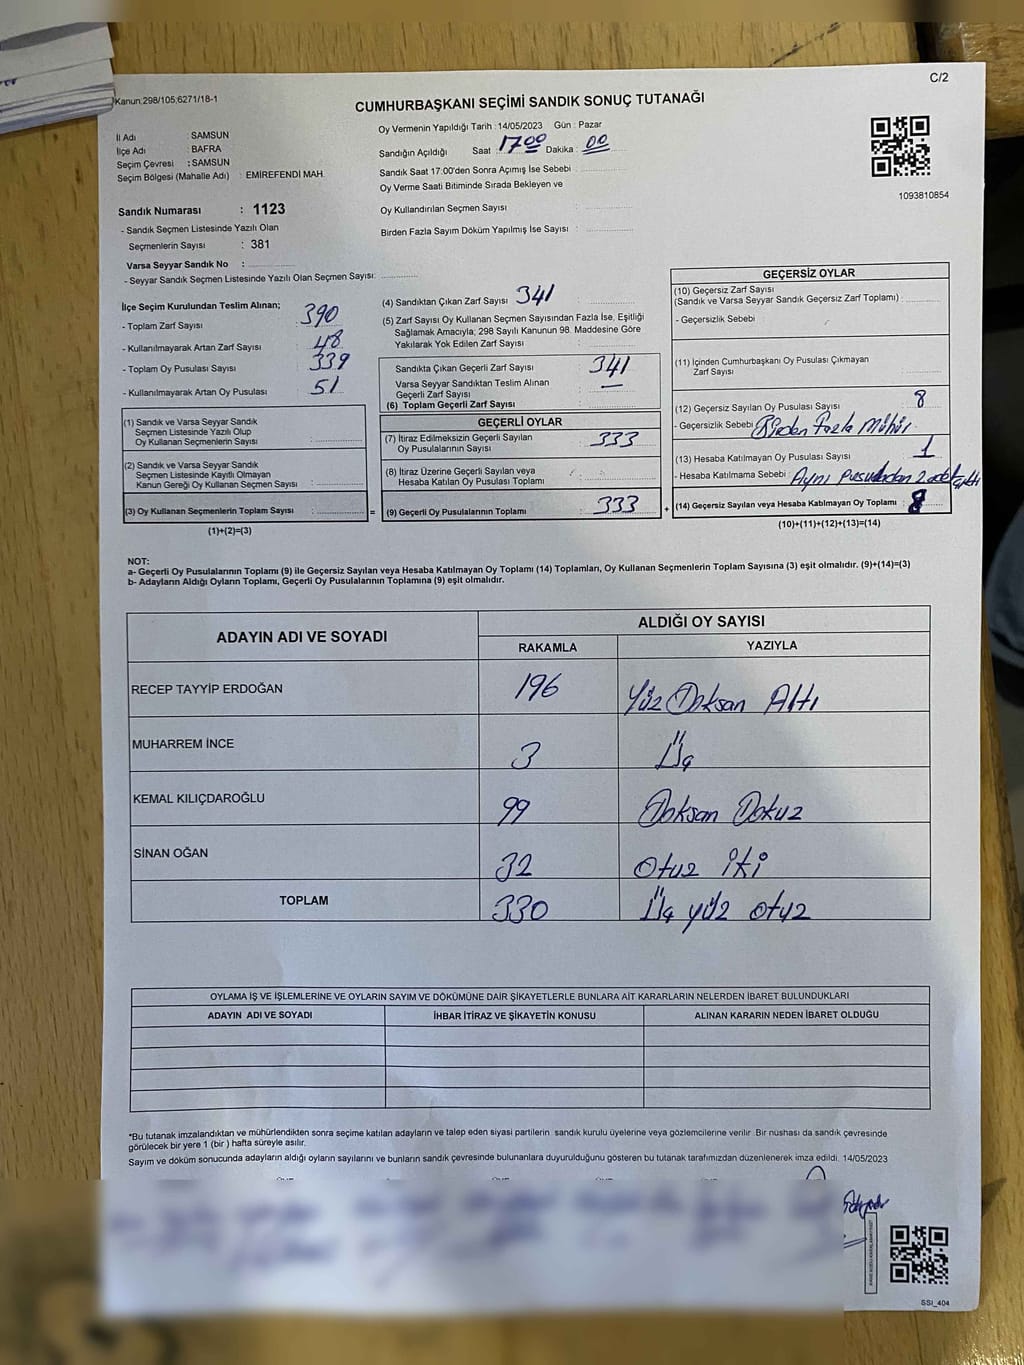 C/2
Kanun:298/105;6271/18-1
CUMHURBAŞKANI SEÇİMİ SANDIK SONUÇ TUTANAĞI
İl Adı : SAMSUN
İlçe Adı : BAFRA
Seçim Çevresi : SAMSUN
Seçim Bölgesi (Mahalle Adı) : EMİREFENDİ MAH.
Oy Vermenin Yapıldığı Tarih : 14/05/2023 Gün : Pazar
Sandığın Açıldığı Saat : 17:00 Dakika : 00
Sandık Saat 17:00'den Sonra Açımış İse Sebebi :
Oy Verme Saati Bitiminde Sırada Bekleyen ve
Oy Kullandırılan Seçmen Sayısı :
Birden Fazla Sayım Döküm Yapılmış İse Sayısı :
1093810854
Sandık Numarası : 1123
- Sandık Seçmen Listesinde Yazılı Olan
Seçmenlerin Sayısı : 381
Varsa Seyyar Sandık No :
- Seyyar Sandık Seçmen Listesinde Yazılı Olan Seçmen Sayısı:
İlçe Seçim Kurulundan Teslim Alınan;
- Toplam Zarf Sayısı 390
- Kullanılmayarak Artan Zarf Sayısı 48
- Toplam Oy Pusulası Sayısı 339
- Kullanılmayarak Artan Oy Pusulası 51
(1) Sandık ve Varsa Seyyar Sandık
Seçmen Listesinde Yazılı Olup
Oy Kullanan Seçmenlerin Sayısı :
(2) Sandık ve Varsa Seyyar Sandık
Seçmen Listesinde Kayıtlı Olmayan
Kanun Gereği Oy Kullanan Seçmen Sayısı :
(3) Oy Kullanan Seçmenlerin Toplam Sayısı :
(1)+(2)=(3)
=
(4) Sandıktan Çıkan Zarf Sayısı 341 :
(5) Zarf Sayısı Oy Kullanan Seçmen Sayısından Fazla İse, Eşitliği
Sağlamak Amacıyla; 298 Sayılı Kanunun 98. Maddesine Göre
Yakılarak Yok Edilen Zarf Sayısı :
Sandıkta Çıkan Geçerli Zarf Sayısı 341
Varsa Seyyar Sandıktan Teslim Alınan
Geçerli Zarf Sayısı : —
(6) Toplam Geçerli Zarf Sayısı :
GEÇERLİ OYLAR
(7) İtiraz Edilmeksizin Geçerli Sayılan
Oy Pusulalarının Sayısı : 333
(8) İtiraz Üzerine Geçerli Sayılan veya
Hesaba Katılan Oy Pusulası Toplamı :
(9) Geçerli Oy Pusulalarının Toplamı : 333
+
GEÇERSİZ OYLAR
(10) Geçersiz Zarf Sayısı
(Sandık ve Varsa Seyyar Sandık Geçersiz Zarf Toplamı) :
- Geçersizlik Sebebi :
(11) İçinden Cumhurbaşkanı Oy Pusulası Çıkmayan
Zarf Sayısı :
(12) Geçersiz Sayılan Oy Pusulası Sayısı : 8
- Geçersizlik Sebebi : Birden Fazla Mühür
(13) Hesaba Katılmayan Oy Pusulası Sayısı : 1
- Hesaba Katılmama Sebebi : Aynı Pusuladan 2 adet
(14) Geçersiz Sayılan veya Hesaba Katılmayan Oy Toplamı : 8
(10)+(11)+(12)+(13)=(14)
NOT:
a- Geçerli Oy Pusulalarının Toplamı (9) ile Geçersiz Sayılan veya Hesaba Katılmayan Oy Toplamı (14) Toplamları, Oy Kullanan Seçmenlerin Toplam Sayısına (3) eşit olmalıdır. (9)+(14)=(3)
b- Adayların Aldığı Oyların Toplamı, Geçerli Oy Pusulalarının Toplamına (9) eşit olmalıdır.
ADAYIN ADI VE SOYADI ALDIĞI OY SAYISI
RAKAMLA YAZIYLA
RECEP TAYYİP ERDOĞAN 196 Yüz Doksan Altı
MUHARREM İNCE 3 Üç
KEMAL KILIÇDAROĞLU 99 Doksan Dokuz
SİNAN OĞAN 32 Otuz iki
TOPLAM 330 Üç yüz otuz
OYLAMA İŞ VE İŞLEMLERİNE VE OYLARIN SAYIM VE DÖKÜMÜNE DAİR ŞİKAYETLERLE BUNLARA AİT KARARLARIN NELERDEN İBARET BULUNDUKLARI
ADAYIN ADI VE SOYADI İHBAR İTİRAZ VE ŞİKAYETİN KONUSU ALINAN KARARIN NEDEN İBARET OLDUĞU
*Bu tutanak imzalandıktan ve mühürlendikten sonra seçime katılan adayların ve talep eden siyasi partilerin sandık kurulu üyelerine veya gözlemcilerine verilir. Bir nüshası da sandık çevresinde
görülecek bir yere 1 (bir ) hafta süreyle asılır.
Sayım ve döküm sonucunda adayların aldığı oyların sayılarını ve bunların sandık çevresinde bulunanlara duyurulduğunu gösteren bu tutanak tarafımızdan düzenlenerek imza edildi. 14/05/2023
SSI_404